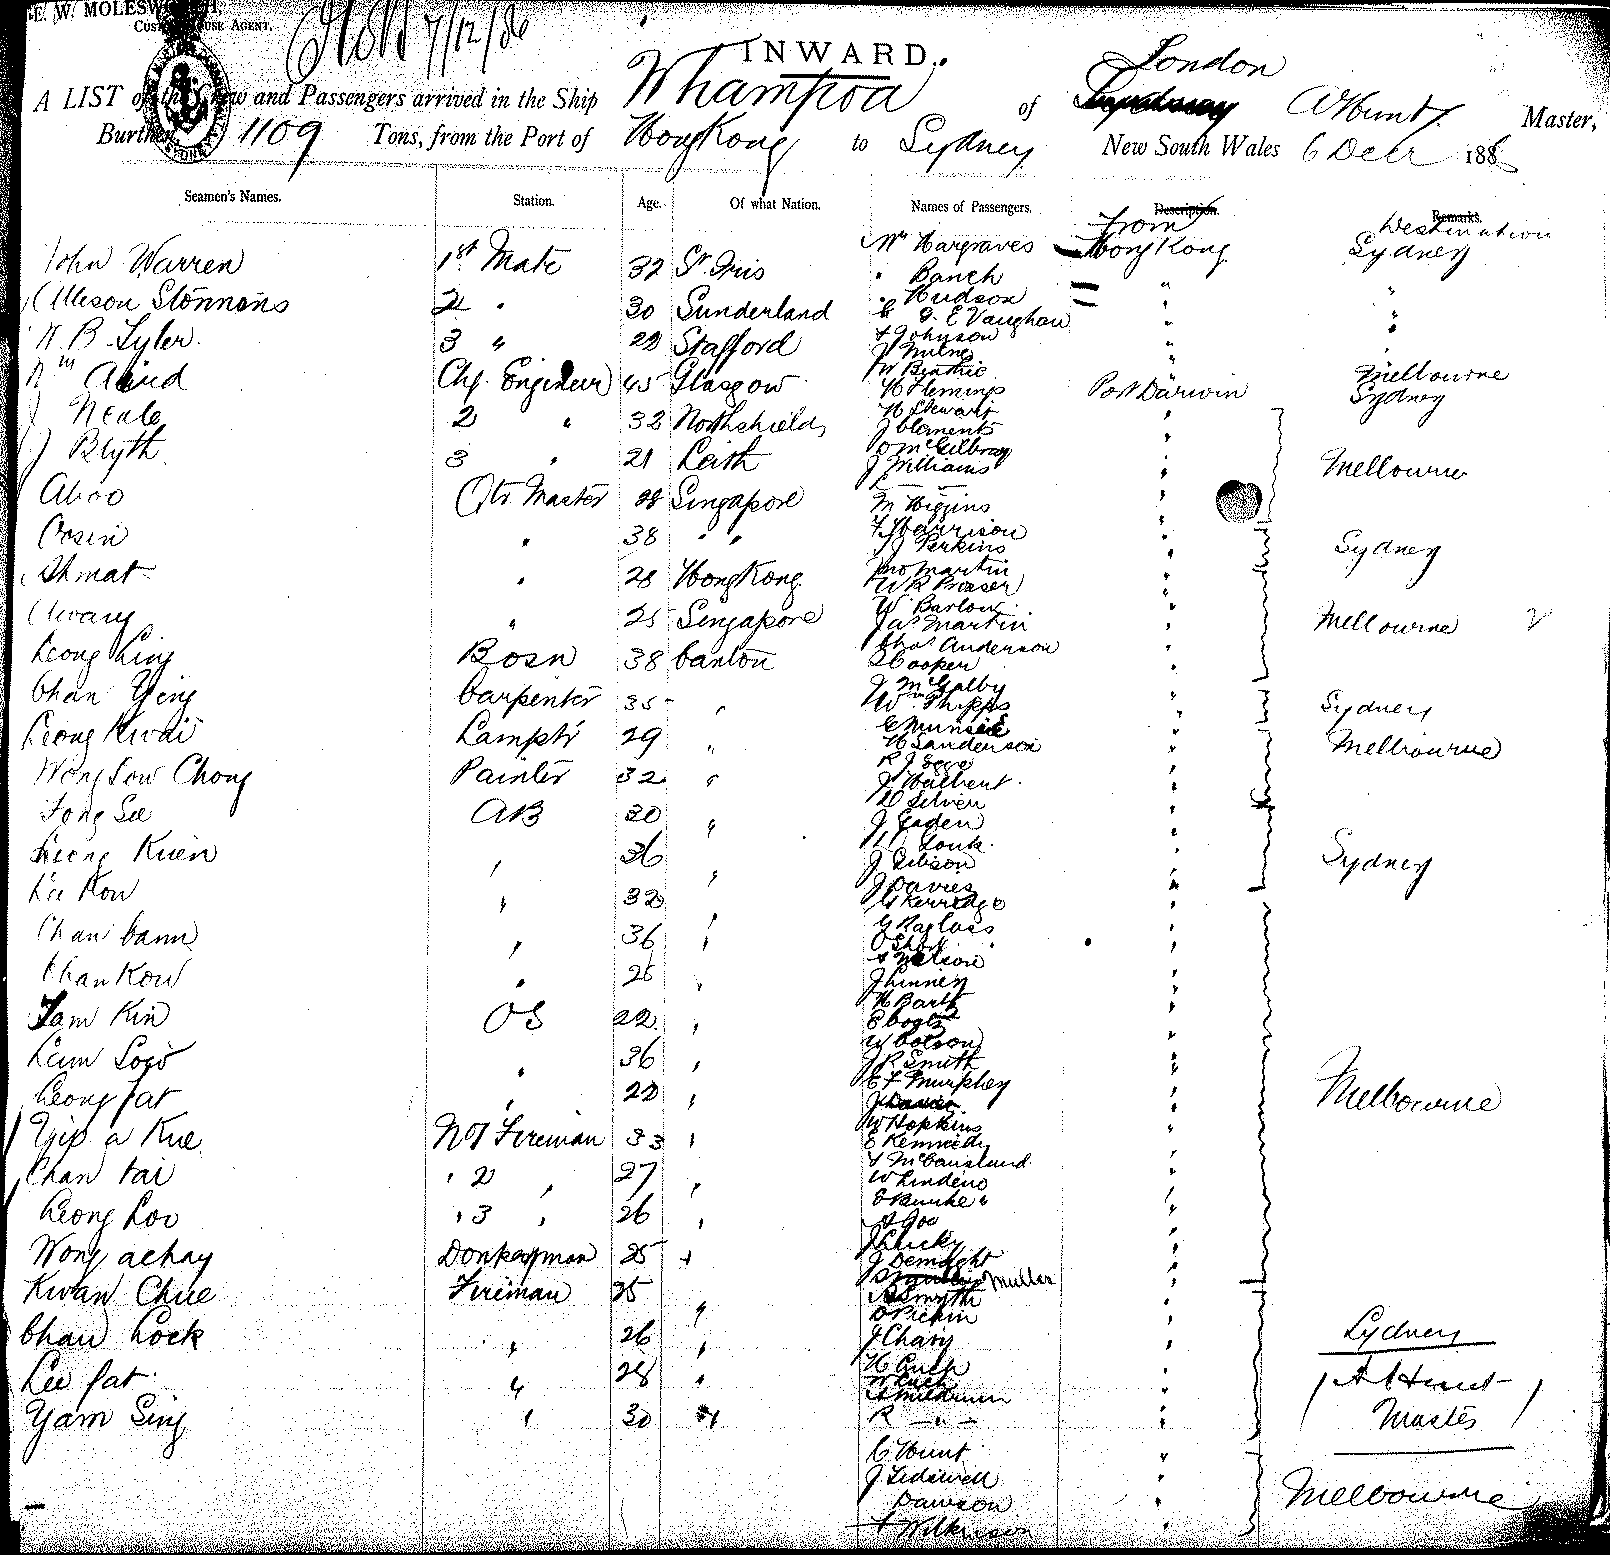 E. W. MOLESWORTH.
CUSTOM HOUSE AGENT.
7/12/86
INWARD.
London
A LIST of the Crew and Passengers arrived in the Ship Whampoa of A Hunt Master,
Burthen 1109 Tons, from the Port of HongKong to Sydney New South Wales 6 Decr 1886
Seamen's Names. Station. Age. Of what Nation. Names of Passengers. Description. Remarks.
From Destination
John Warren 1st Mate 32 St Ives
Stonnens 2 " 30 Sunderland
W B Tyler 3 " 22 Stafford
Wm Chf. Engineer 45 Glasgow
J Neale 2 " 32 Northshields
J Blyth 3 " 21 Leith
Aboo Qtr Master 28 Singapore
Cosin " 38 " "
Ahmat " 28 HongKong
" 25 Singapore
Leong Ling Bosn 38 Canton
Chan Ying Carpenter 35 "
Leong Kwai Lamptr 29 "
Wong Sow Chong Painter 32 "
Fong See AB 30 "
Leong Kuen " 36 "
Lee Kow " 32 "
Chan Cann " 36 "
Chan Kow " 26 "
Tam Kin OS 22 "
Lum Soo " 36 "
Leong fat " 22 "
Yip a Kue No 1 Fireman 33 "
Chan tai " 2 " 27 "
Leong Loo " 3 " 26 "
Wong achay Donkeyman 25 "
Kwan Chue Fireman 25 "
Chan Lock " 26 "
Lee fat " 28 "
Yam Sing " 30 "
Mr Hargraves HongKong Sydney
" Banch " "
" Hudson " "
G. E Vaughan " "
J Johnson "
J Milne
W Beattie " Melbourne
H Flemings Port Darwin Sydney
H Stewart "
J Clements "
D McGilbray "
J Williams " Melbourne
M Higgins "
F Harrison "
J Perkins " Sydney
Jno Martin "
W R Fraser "
W Barlow "
Jas Martin " Melbourne
Chas Anderson "
Cooper "
J McGalby "
Wm Phipps " Sydney
C Munsie "
H Sanderson " Melbourne
R J
J Halbent "
D Silven "
J Eaden "
J Gibson " Sydney
J Davies "
G Kerridge "
G Raglass "
O Short "
Nelson "
J Linney "
H Barth "
W Cotson "
J R Smith "
E F Murphy " Melbourne
W Hopkins "
E Kennedy "
J McCausland
W Lindeno "
A Goo "
J Clicky "
J Demdght "
Muller
A Smyth "
J Chang " Sydney
A Hunt
Master
R — " —
C Hunt "
J Sidwell "
Dawson " Melbourne
Wilkinson "